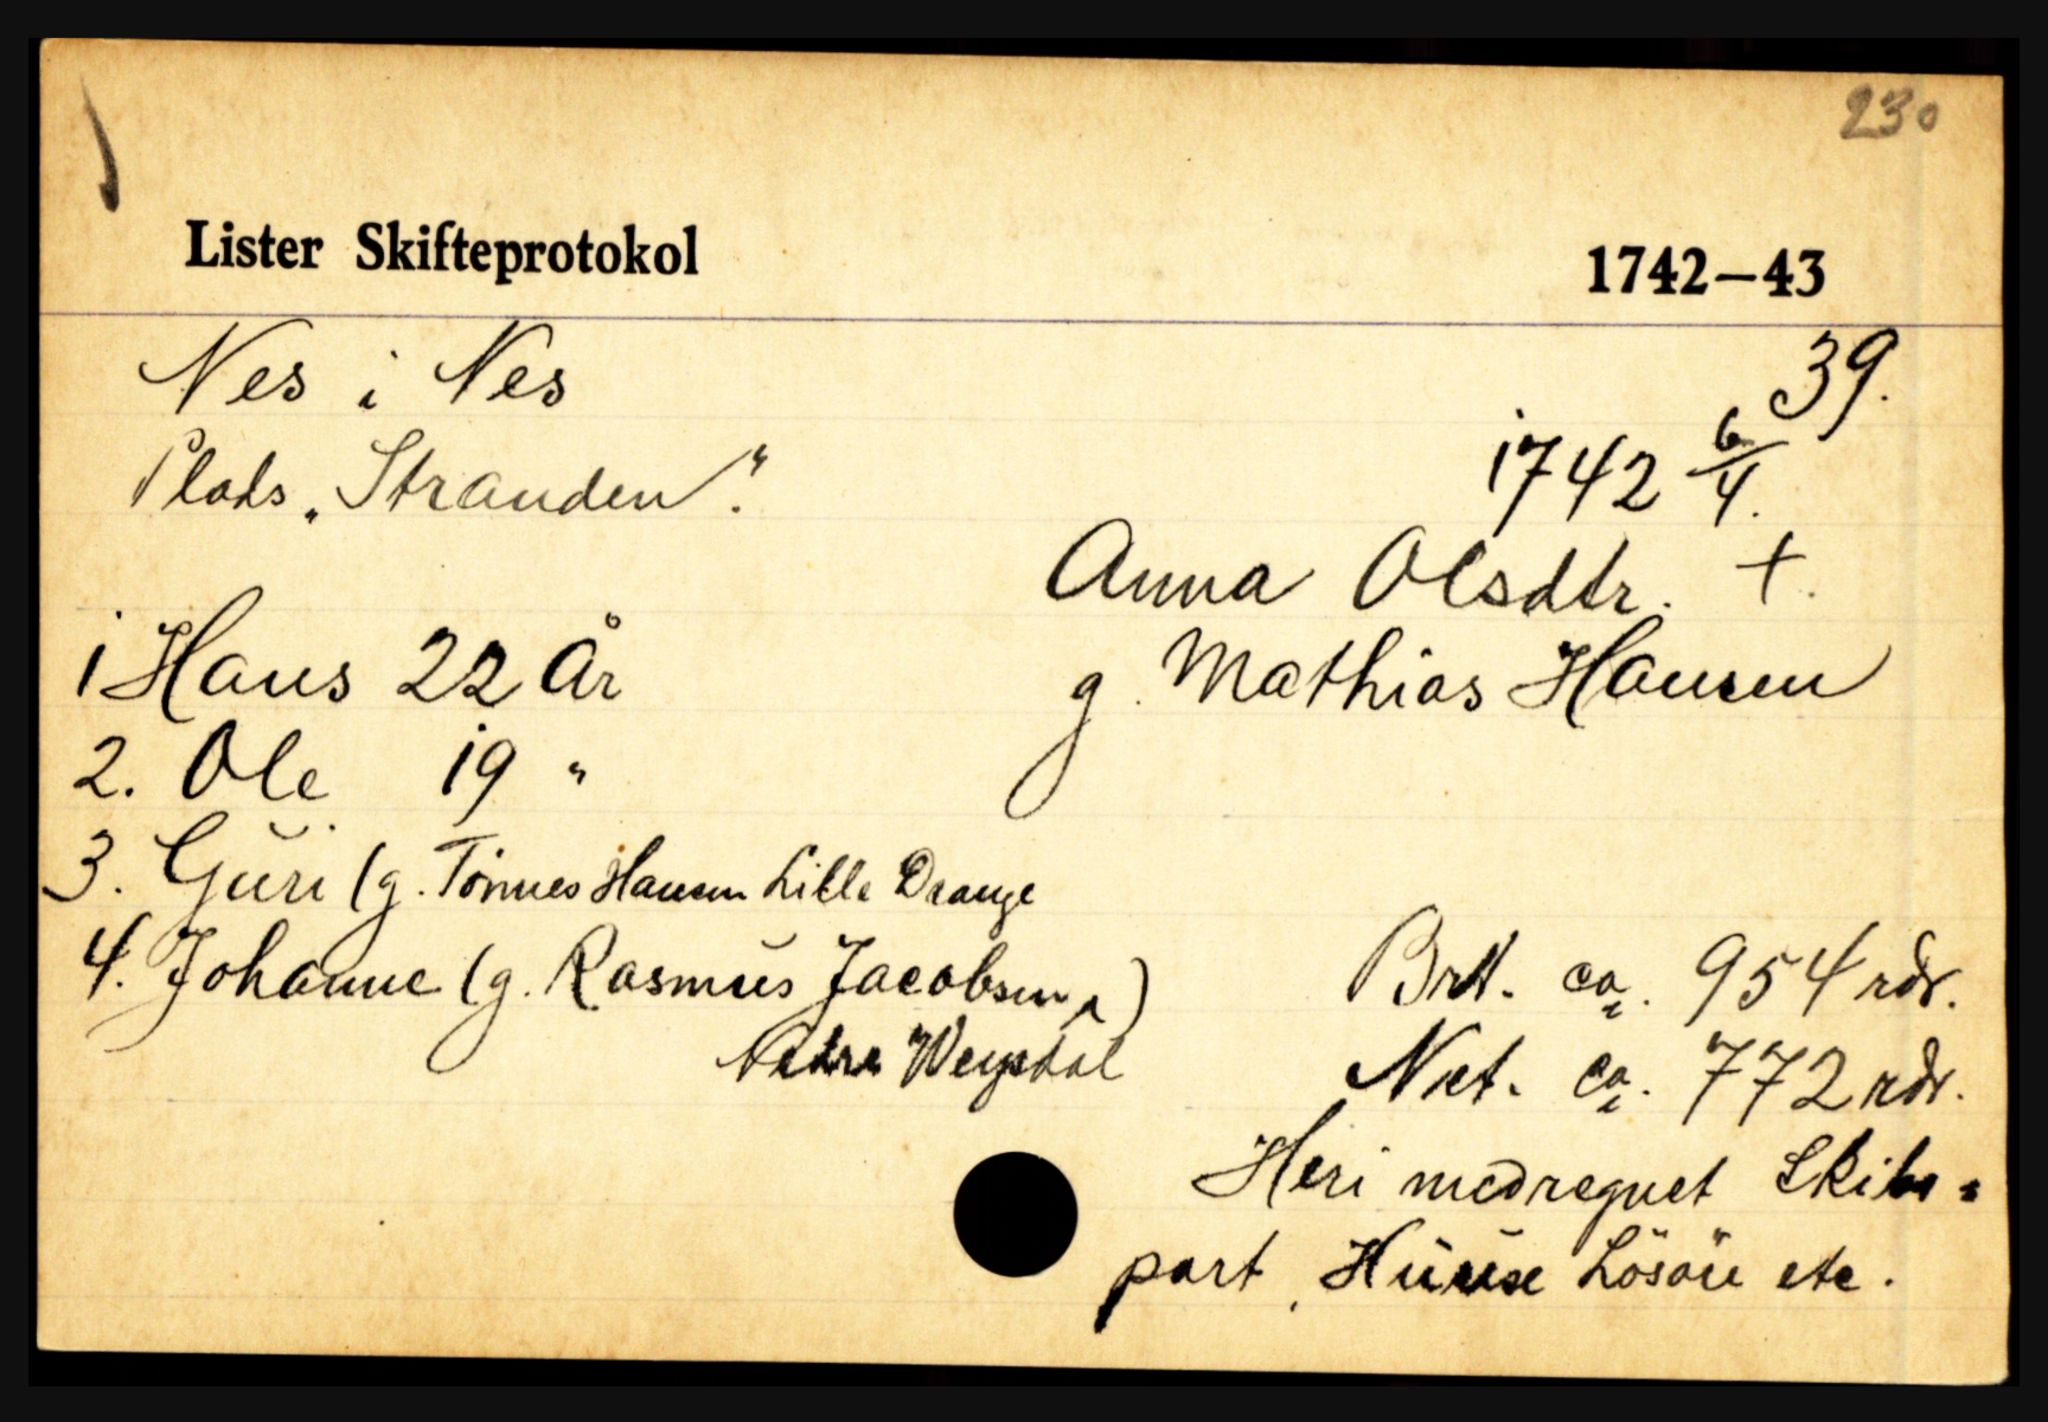 230
Lister Skifteprotokol 1742–43
Nes i Nes 39.
Plads „Stranden". 1742 6/4.
Anna Olsdtr. +.
g. Mathias Hansen
1 Hans 22 År
2. Ole 19 "
3. Guri (g. Tönnes Hansen Lille Drange
4. Johanne (g. Rasmus Jacobsen,)
Nedre
Brt. ca. 954 rdr.
Net. ca. 772 rdr.
Heri medregnet Skibs-
part, Huuse Lösöre etc.